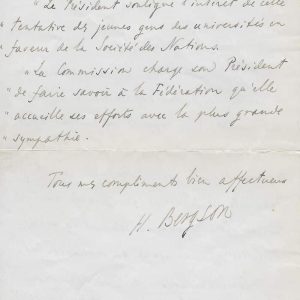 "Le Président souligne l'intérêt de cette
"tentative des jeunes gens des universités en
"faveur de la Société des Nations.
"La Commission charge son Président
"de faire savoir à la Fédération qu'elle
"accueille ses efforts avec la plus grande
"sympathie.
Tous mes compliments bien affectueux
H. Bergson